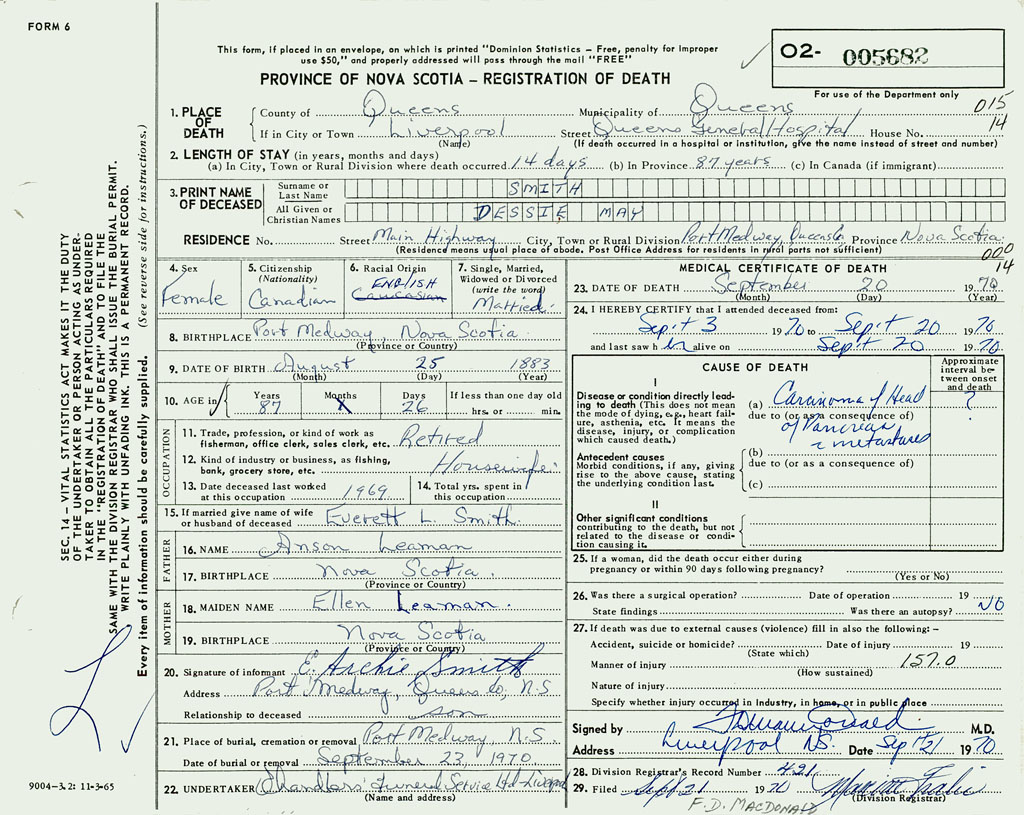 FORM 6
This form, if placed in an envelope, on which is printed "Dominion Statistics – Free, penalty for improper
use $50," and properly addressed will pass through the mail "FREE"
O2- 005682
For use of the Department only
PROVINCE OF NOVA SCOTIA – REGISTRATION OF DEATH
015
14
1. PLACE OF DEATH
County of Queens Municipality of Queens
If in City or Town Liverpool Street Queens General Hospital House No.
(Name) (If death occurred in a hospital or institution, give the name instead of street and number)
2. LENGTH OF STAY (in years, months and days)
(a) In City, Town or Rural Division where death occurred 14 days (b) In Province 87 years (c) In Canada (if immigrant)
3. PRINT NAME OF DECEASED
Surname or Last Name SMITH
All Given or Christian Names DESSIE MAY
RESIDENCE No. Street Main Highway City, Town or Rural Division Port Medway, Queens Co Province Nova Scotia
(Residence means usual place of abode. Post Office Address for residents in rural parts not sufficient)
000
14
4. Sex
Female
5. Citizenship
(Nationality)
Canadian
6. Racial Origin
ENGLISH
Caucasian
7. Single, Married,
Widowed or Divorced
(write the word)
Married
8. BIRTHPLACE Port Medway, Nova Scotia
(Province or Country)
9. DATE OF BIRTH August 25 1883
(Month) (Day) (Year)
10. AGE in
Years Months Days If less than one day old
87 X 26 hrs. or min.
OCCUPATION
11. Trade, profession, or kind of work as
fisherman, office clerk, sales clerk, etc. Retired
12. Kind of industry or business, as fishing,
bank, grocery store, etc. Housewife
13. Date deceased last worked
at this occupation 1969
14. Total yrs. spent in
this occupation
15. If married give name of wife
or husband of deceased Everett L. Smith
FATHER
16. NAME Anson Leaman
17. BIRTHPLACE Nova Scotia
(Province or Country)
MOTHER
18. MAIDEN NAME Ellen Leaman
19. BIRTHPLACE Nova Scotia
(Province or Country)
20. Signature of informant E. Archie Smith
Address Port Medway, Queens Co, N.S
Relationship to deceased son
21. Place of burial, cremation or removal Port Medway N.S
Date of burial or removal September 23, 1970
22. UNDERTAKER Chandlers' Funeral Service Ltd-Liverpool
(Name and address)
MEDICAL CERTIFICATE OF DEATH
23. DATE OF DEATH September 20 1970
(Month) (Day) (Year)
24. I HEREBY CERTIFY that I attended deceased from:
Sept 3 1970 to Sept 20 1970
and last saw her alive on Sept 20 1970
CAUSE OF DEATH
Approximate
interval be-
tween onset
and death
I
Disease or condition directly lead-
ing to death (This does not mean
the mode of dying, e.g., heart fail-
ure, asthenia, etc. It means the
disease, injury, or complication
which caused death.)
(a) Carcinoma of Head ?
due to (or as a consequence of)
of Pancreas
metastases
Antecedent causes
Morbid conditions, if any, giving
rise to the above cause, stating
the underlying condition last.
(b)
due to (or as a consequence of)
(c)
II
Other significant conditions
contributing to the death, but not
related to the disease or condi-
tion causing it.
25. If a woman, did the death occur either during
pregnancy or within 90 days following pregnancy?
(Yes or No)
26. Was there a surgical operation? Date of operation 19
State findings Was there an autopsy? NO
27. If death was due to external causes (violence) fill in also the following: –
Accident, suicide or homicide? Date of injury 19
(State which)
Manner of injury 157.0
(How sustained)
Nature of injury
Specify whether injury occurred in Industry, in home, or in public place
Signed by M.D.
Address Liverpool NS. Date Sept 21 1970
28. Division Registrar's Record Number 421
29. Filed Sept 21 1970
(Division Registrar)
F.D. MACDONALD
SEC. 14 – VITAL STATISTICS ACT MAKES IT THE DUTY
OF THE UNDERTAKER OR PERSON ACTING AS UNDER-
TAKER TO OBTAIN ALL THE PARTICULARS REQUIRED
IN THE "REGISTRATION OF DEATH" AND TO FILE THE
SAME WITH THE DIVISION REGISTRAR WHO SHALL ISSUE THE BURIAL PERMIT.
WRITE PLAINLY WITH UNFADING INK. THIS IS A PERMANENT RECORD.
Every item of information should be carefully supplied. (See reverse side for instructions.)
9004-3.2: 11-3-65